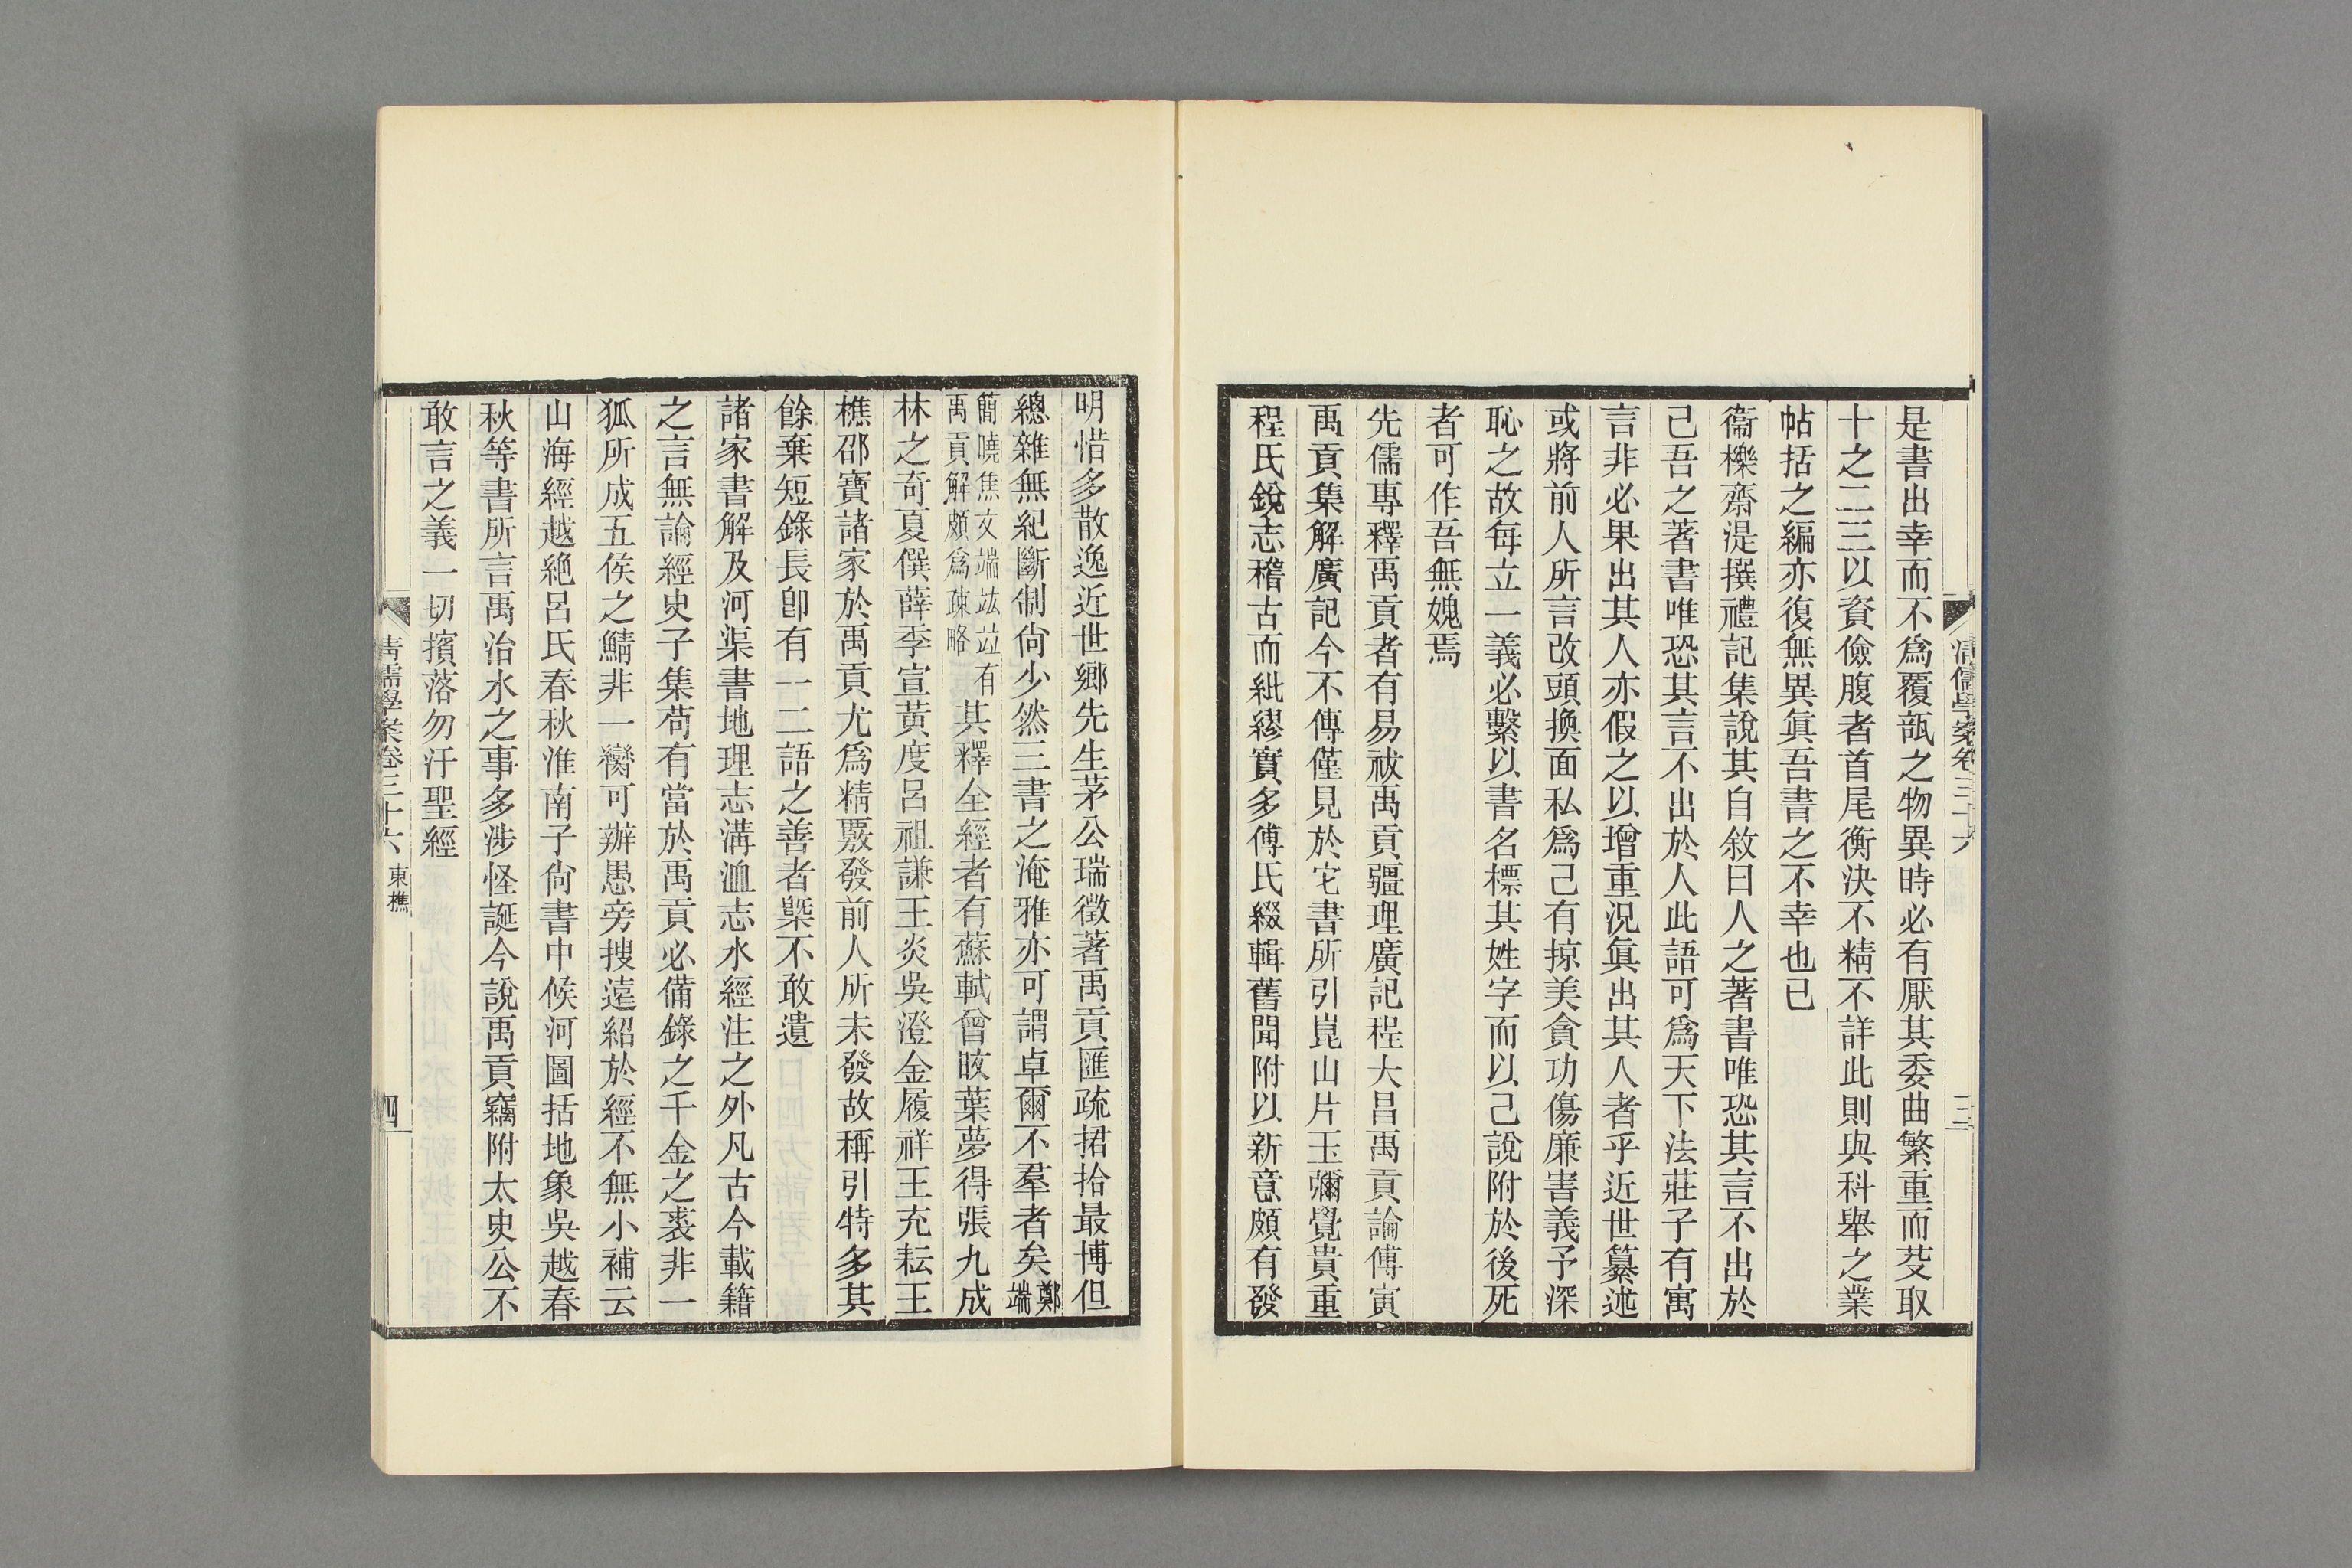 清儒學案卷三十六
三
是書出幸而不爲覆瓿之物異時必有厭其委曲繁重而芟取
十之二三以資儉腹者首尾衡決不精不詳此則與科舉之業
帖括之編亦復無異眞吾書之不幸也已
衞櫟齋湜撰禮記集說其自敘曰人之著書唯恐其言不出於
己吾之著書唯恐其言不出於人此語可爲天下法莊子有寓
言非必果出其人亦假之以增重況眞出其人者乎近世纂述
或將前人所言改頭換面私爲己有掠美貪功傷廉害義予深
恥之故每立一義必繫以書名標其姓字而以己說附於後死
者可作吾無媿焉
先儒專釋禹貢者有易祓禹貢疆理廣記程大昌禹貢論傅寅
禹貢集解廣記今不傳僅見於它書所引崑山片玉彌覺貴重
程氏銳志稽古而紕繆實多傅氏綴輯舊聞附以新意頗有發
明惜多散逸近世鄉先生茅公瑞徵著禹貢匯疏捃拾最博但
總雜無紀斷制尙少然三書之淹雅亦可謂卓爾不羣者矣鄭端
簡曉焦文端竑竝有禹貢解頗爲疎略其釋全經者有蘇軾曾旼葉夢得張九成
林之奇夏僎薛季宣黃度呂祖謙王炎吳澄金履祥王充耘王
樵邵寶諸家於禹貢尤爲精覈發前人所未發故稱引特多其
餘棄短錄長卽有一二語之善者槩不敢遺
諸家書解及河渠書地理志溝洫志水經注之外凡古今載籍
之言無論經史子集苟有當於禹貢必備錄之千金之裘非一
狐所成五侯之鯖非一臠可辦愚旁搜遠紹於經不無小補云
山海經越絕呂氏春秋淮南子尙書中候河圖括地象吳越春
秋等書所言禹治水之事多涉怪誕今說禹貢竊附太史公不
敢言之義一切擯落勿汙聖經
清儒學案卷三十六 東樵
四